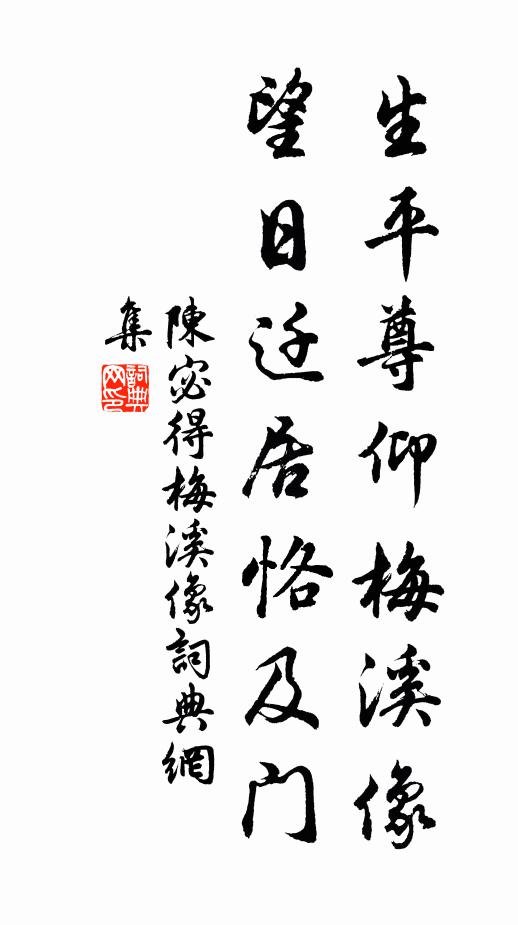 生平尊仰梅溪像
望日迁居恪及门
陳宓得梅溪像詞典網
集
詞典网印